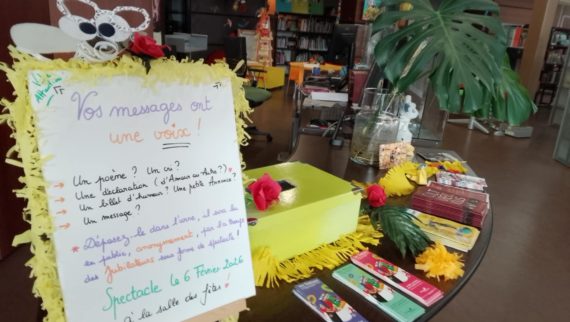 Vos messages ont
une voix !
Un poème ? Un cri ?
Une déclaration (d'Amour ou Autre ?) *
Un billet d'humeur ? Une petite Annonce ?
Un message ?
* Déposez-le dans l'urne, il sera lu
en public, anonymement, par la troupe
des Jubilateurs sous forme de spectacle !
Spectacle le 6 Février 2016
à la salle des fêtes !